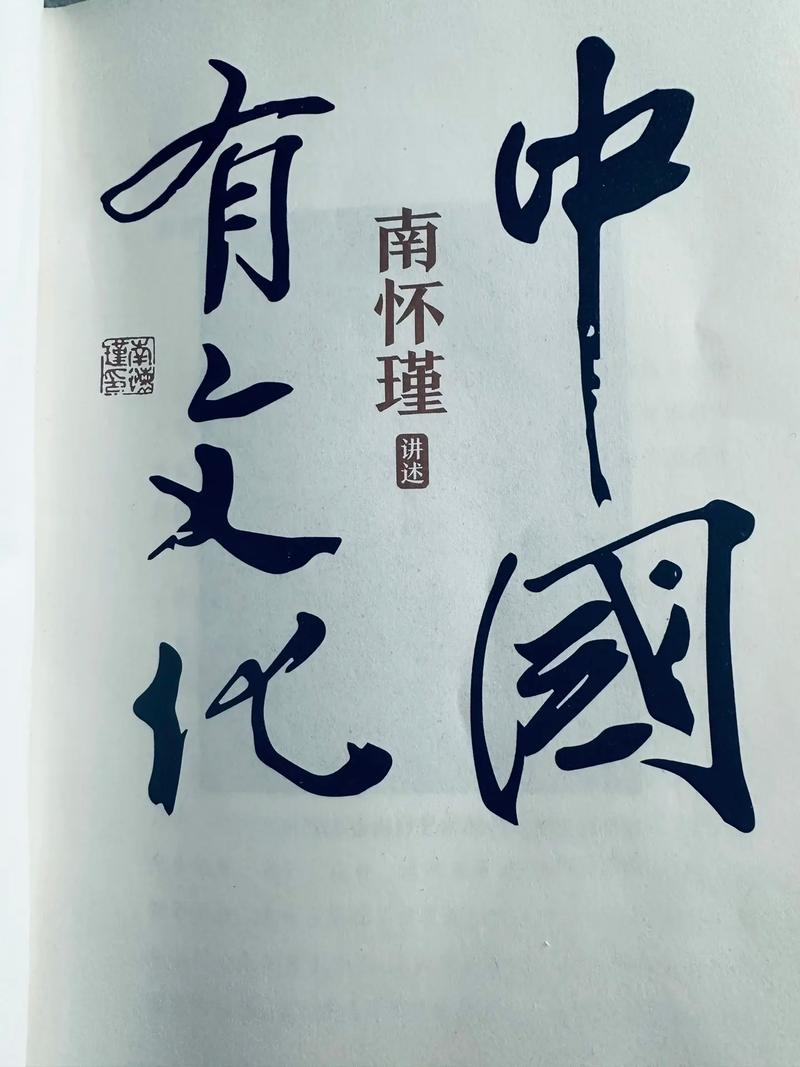 中國
有文化
南怀瑾
讲述
南懷
瑾印